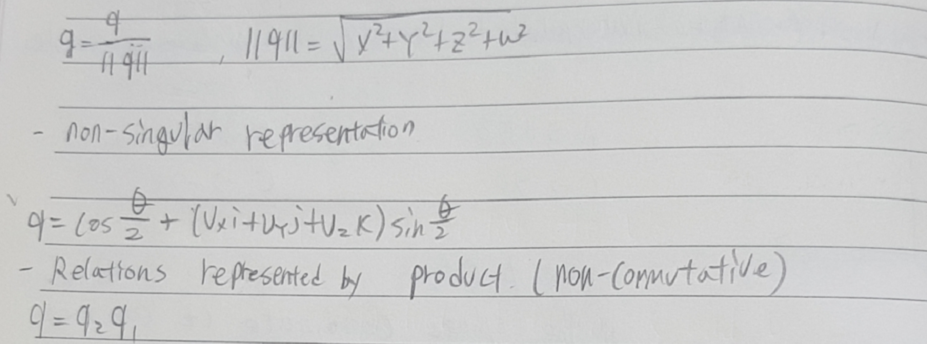 q = q/||q|| , ||q|| = √(x²+y²+z²+w²)
- non-singular representation
q = cos θ/2 + (Uxi+Uyj+Uzk) sin θ/2
- Relations represented by product. (non-commutative)
q = q₂q₁